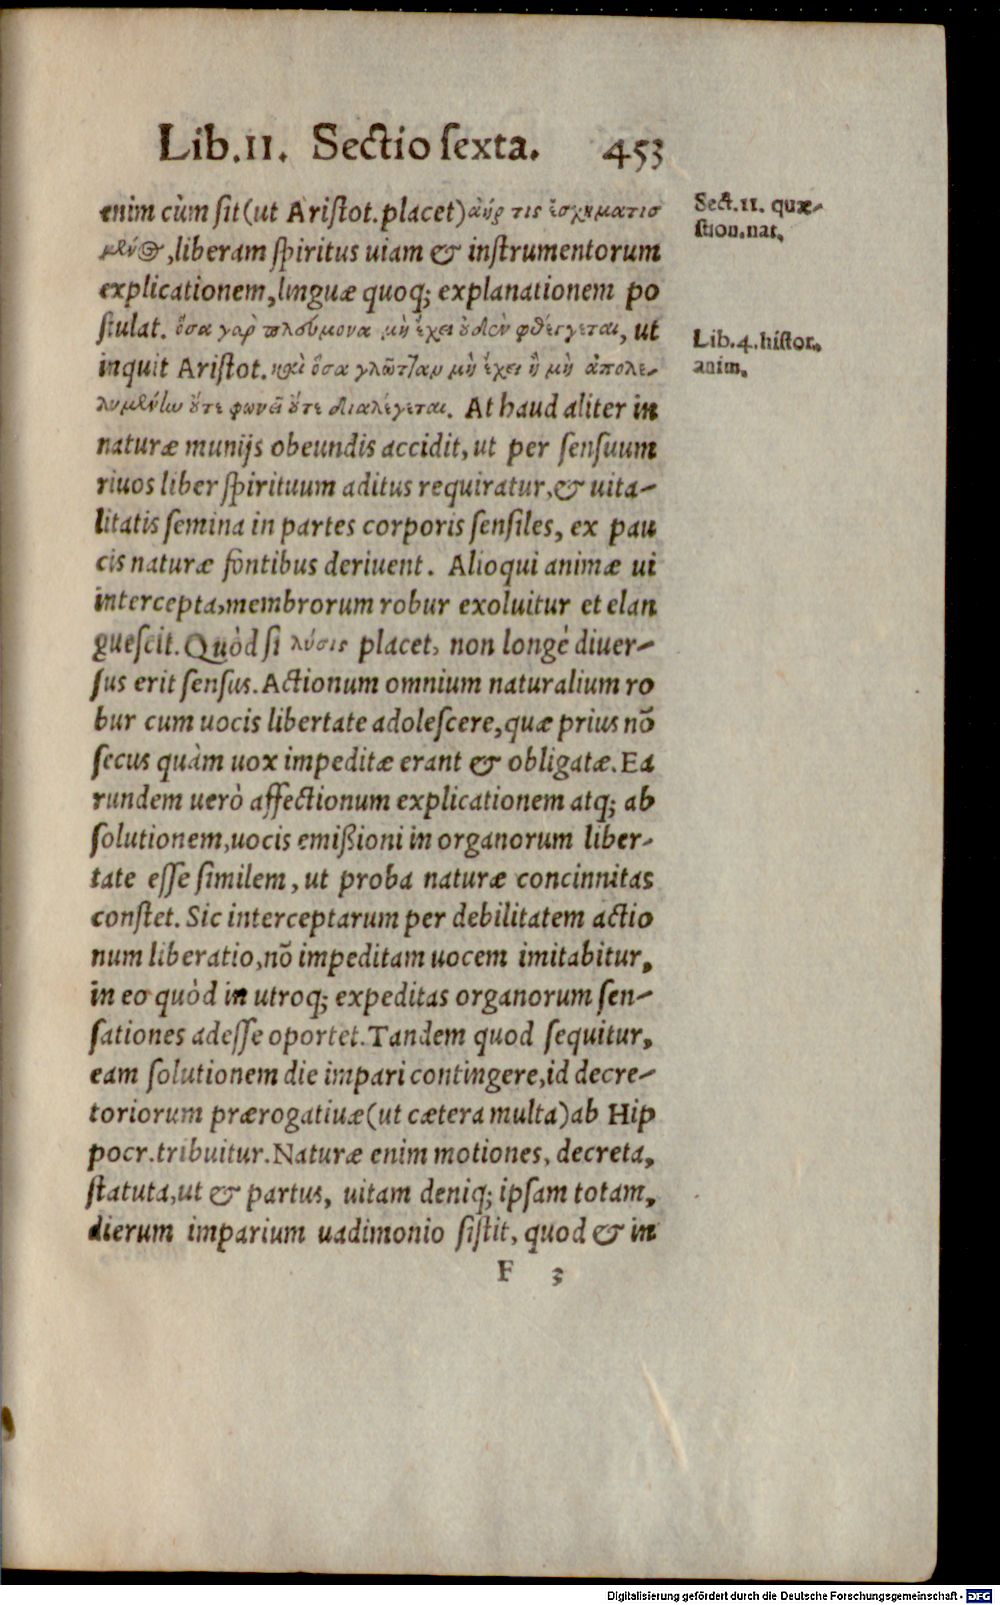 Lib.II. Sectio ſexta. 453
enim cùm ſit(ut Ariſtot.placet)ἀήρ τις ἐσχηματισ
μένος,liberam ſpiritus uiam & inſtrumentorum
explicationem,linguæ quoq; explanationem po
ſtulat. ὅσα γαρ πλεύμονα μὴ ἔχει ουδὲν φθέγγεται, ut
inquit Ariſtot.καὶ ὅσα γλῶτταν μὴ ἔχει ἢ μὴ ἀπολε-
λυμένην οὔτε φωνεῖ οὔτε διαλέγεται. At haud aliter in
naturæ munijs obeundis accidit, ut per ſenſuum
riuos liber ſpirituum aditus requiratur,& uita-
litatis ſemina in partes corporis ſenſiles, ex pau
cis naturæ fontibus deriuent. Alioqui animæ ui
intercepta,membrorum robur exoluitur et elan
gueſcit. Quòd ſi λύσις placet, non longè diuer-
ſus erit ſenſus. Actionum omnium naturalium ro
bur cum uocis libertate adoleſcere,quæ prius nō
ſecus quàm uox impeditæ erant & obligatæ. Ea
rundem uerò affectionum explicationem atq; ab
ſolutionem,uocis emißioni in organorum liber-
tate eſſe ſimilem, ut proba naturæ concinnitas
conſtet. Sic interceptarum per debilitatem actio
num liberatio,nō impeditam uocem imitabitur,
in eo quòd in utroq; expeditas organorum ſen-
ſationes adeſſe oportet.Tandem quod ſequitur,
eam ſolutionem die impari contingere,id decre-
toriorum prærogatiuæ(ut cætera multa)ab Hip
pocr.tribuitur.Naturæ enim motiones, decreta,
ſtatuta,ut & partus, uitam deniq; ipſam totam,
dierum imparium uadimonio ſiſtit, quod & in
F 3
Sect.II. quæ-
ſtion.nat.
Lib.4.hiſtor.
anim.
Digitalisierung gefördert durch die Deutsche Forschungsgemeinschaft - DFG